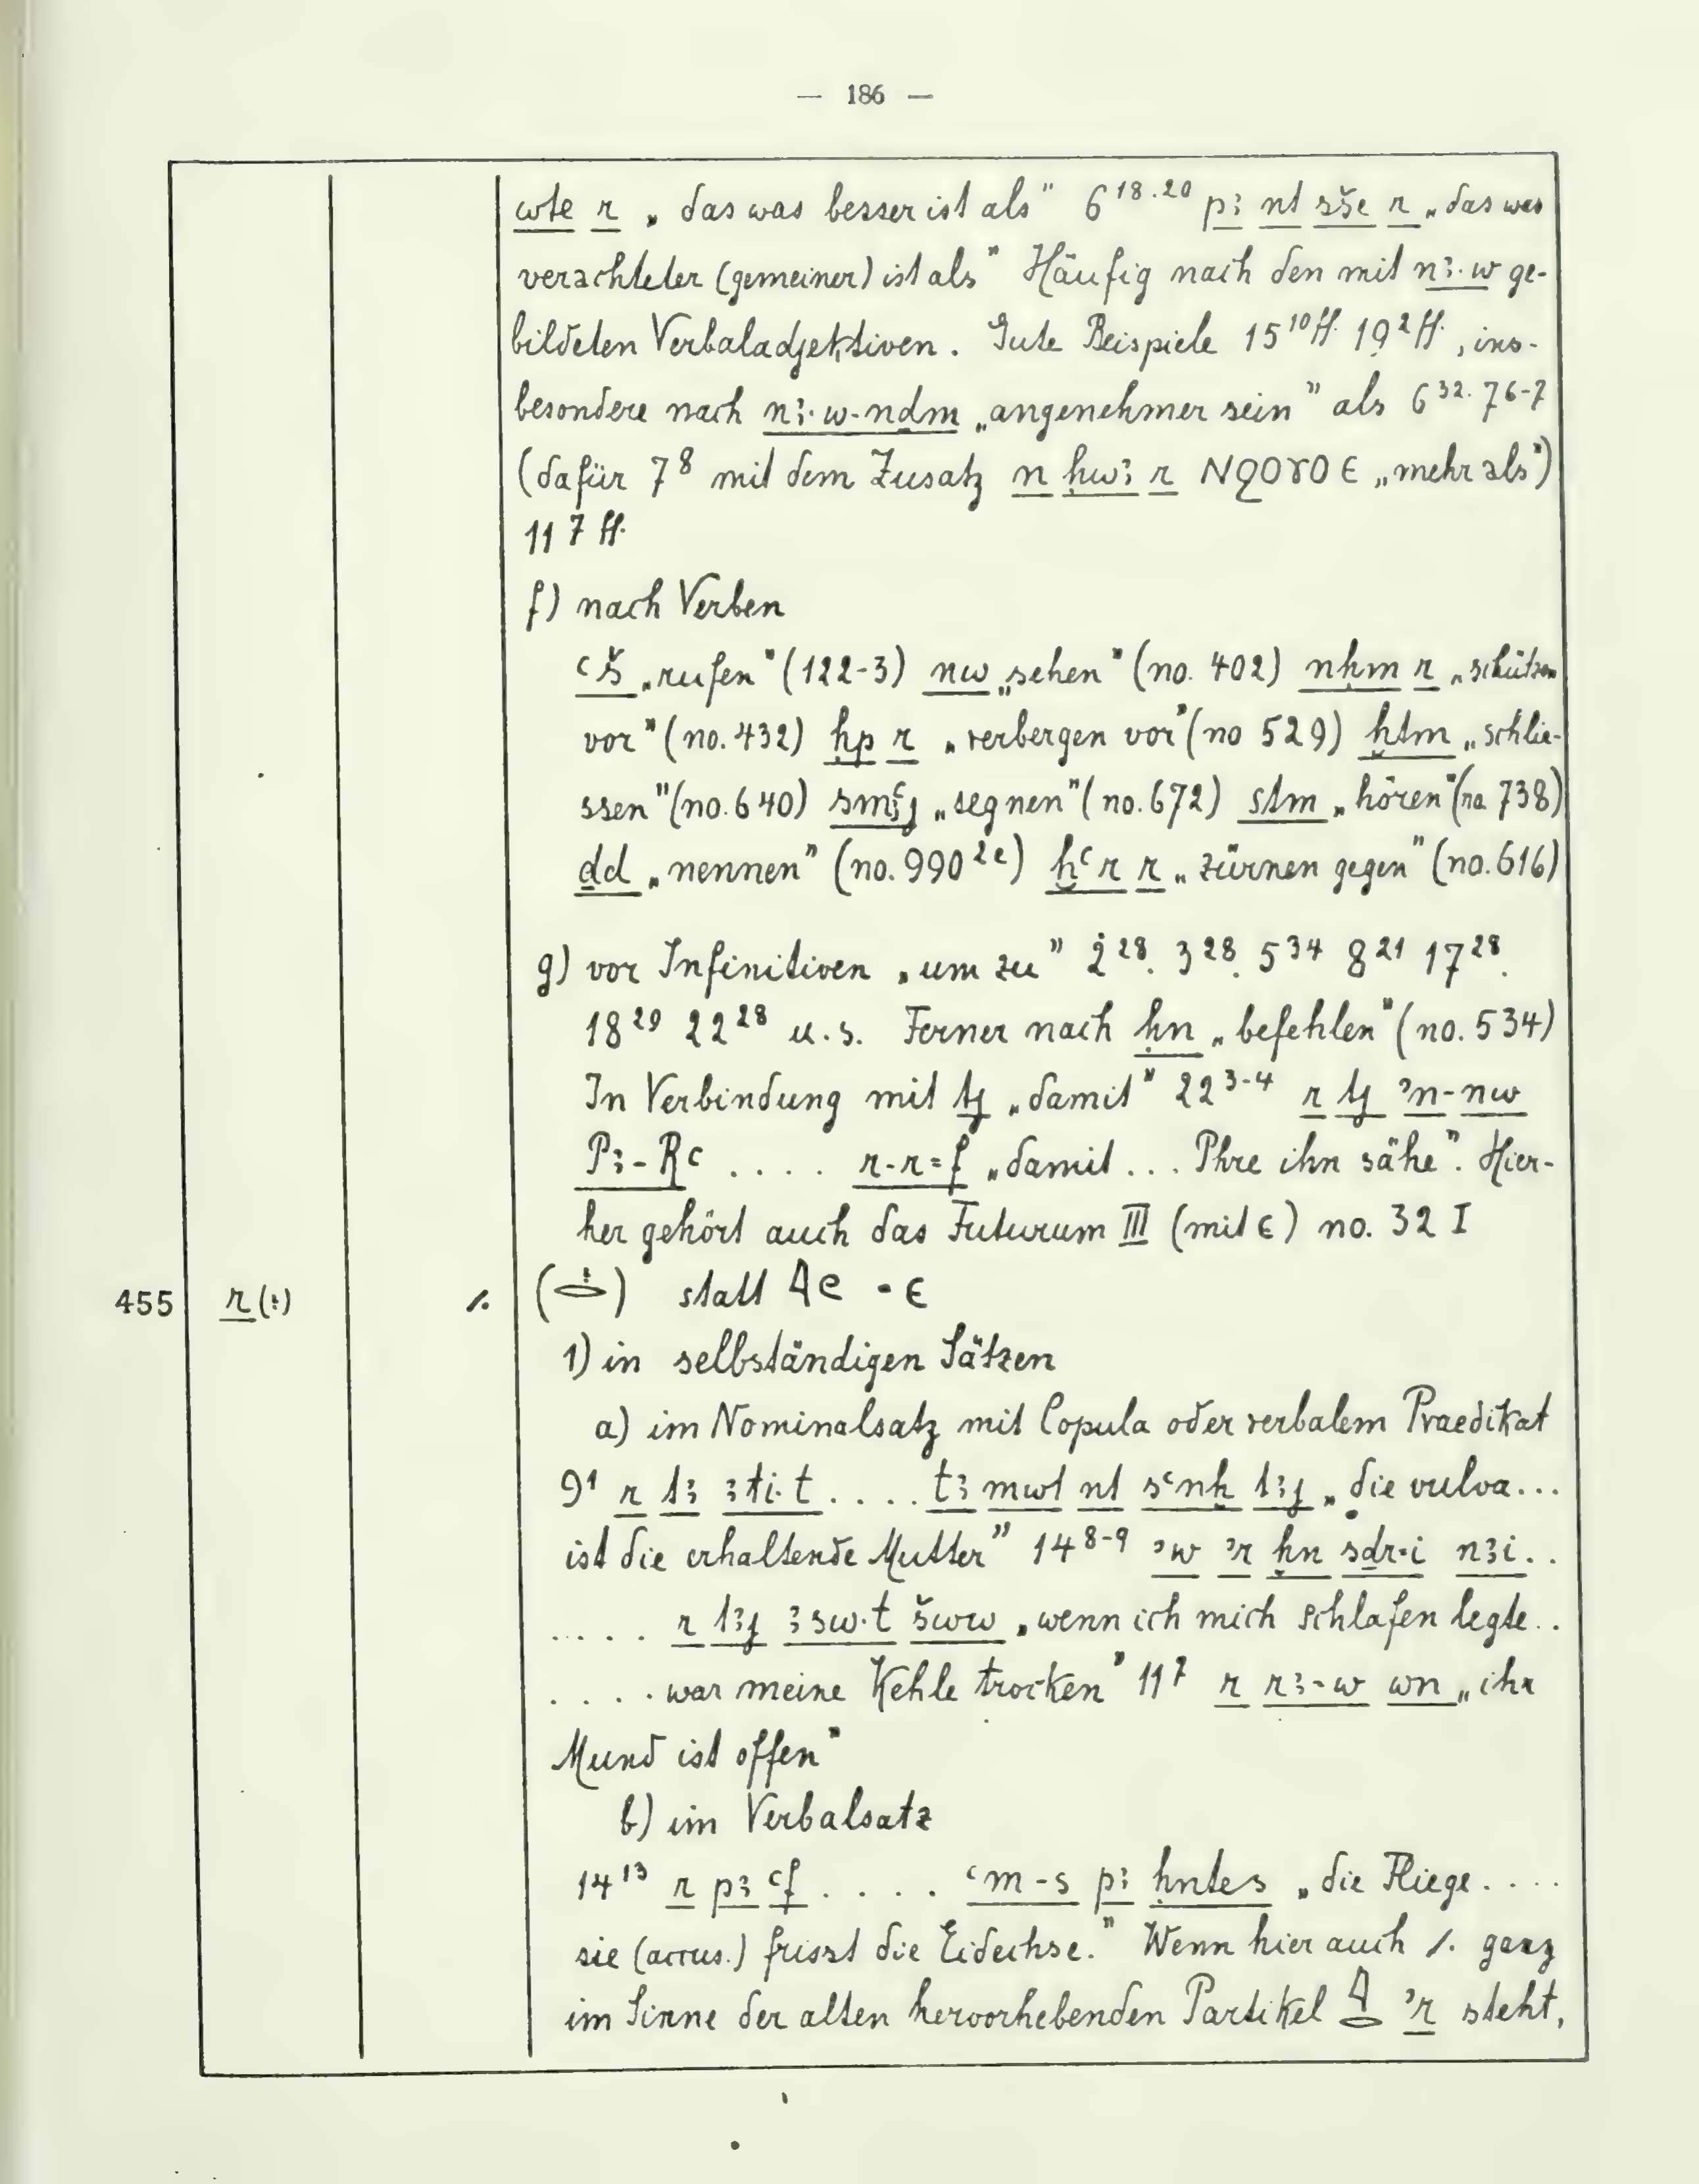 — 186 —
wte r „das was besser ist als" 6¹⁸·²⁰ pꜣ nt sše r „das was
verachteter (gemeiner) ist als" Häufig nach den mit nꜣ·w ge-
bildeten Verbaladjektiven. Gute Beispiele 15¹⁰ff. 19²ff., ins-
besondere nach nꜣ·w-nḏm „angenehmer sein" als 6³². 7⁶⁻⁷
(dafür 7⁸ mit dem Zusatz n ḥwꜣ r ⲚϨⲞⲨⲞ Ⲉ „mehr als")
11⁷ff.
f) nach Verben
ꜥš „rufen" (122-3) nw „sehen" (no. 402) nḥm r „schützen
vor" (no. 432) ḥp r „verbergen vor" (no 529) ḫtm „schlie-
ssen" (no. 640) „segnen" (no. 672) stm „hören" (no 738)
ḏd „nennen" (no. 990²ᵉ) ḫꜥr r „zürnen gegen" (no. 616)
g) vor Infinitiven „um zu" 2²⁸. 3²⁸. 5³⁴ 8²¹ 17²⁸.
18²⁹ 22²⁸ u. s. Ferner nach ḥn „befehlen" (no. 534)
In Verbindung mit tj „damit" 22³⁻⁴ r tj ʾn-nw
Pꜣ-Rꜥ .... r-r=f „damit ... Phre ihn sähe". Hier-
her gehört auch das Futurum III (mit ⲉ) no. 32 I
455 r(:) ⁒ ( ) statt = ⲉ
1) in selbständigen Sätzen
a) im Nominalsatz mit Copula oder verbalem Praedikat
9¹ r tꜣ ꜣti·t .... tꜣ mwt nt sꜥnḫ tꜣj „die vulva...
ist die erhaltende Mutter" 14⁸⁻⁹ ʾw ʾr ḫn sḏr·i nꜣi..
.... r tꜣj ꜣsw·t šww „wenn ich mich schlafen legte..
.... war meine Kehle trocken" 11⁷ r rꜣ-w wn „ihr
Mund ist offen"
b) im Verbalsatz
14¹³ r pꜣ ꜥf .... ꜥm-s pꜣ ḥntes „die Fliege....
sie (accus.) frisst die Eidechse." Wenn hier auch ⁒ ganz
im Sinne der alten hervorhebenden Partikel 𓇋𓂋 ʾr steht,